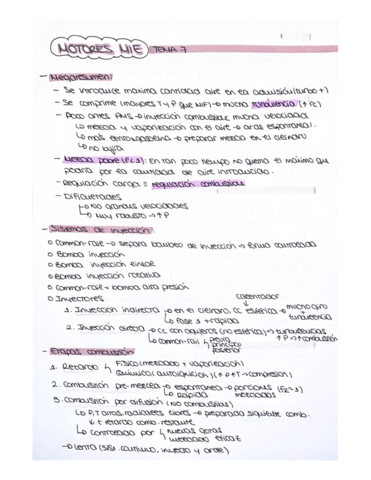 MOTORES MIE TEMA 7
- Megaresumen:
- Se introduce máxima cantidad aire en la admisión (turbo +)
- Se comprime (mayores T y P que MIF) → mucha turbulencia (↑rc)
- Poco antes PMS → inyección combustible mucha velocidad
↳ mezcla y vaporización con el aire → arde espontánea.
↳ más → preparar mezcla en el cilindro
↳ no bujía
- Mezcla pobre (Fr<1): En tan poco tiempo no quemo el máximo que
podría por la cantidad de aire introducida.
- Regulación carga = regulación combustible
- Dificultades
↳ No grandes velocidades
↳ Muy robusto → ↑P
- Sistemas de inyección:
o Common-rail → separa bombeo de inyección → forma controlada
o Bomba inyección
o Bomba inyección lineal
o Bomba inyección rotativa
o Common-rail + bomba alta presión
o Inyectores
1. Inyección indirecta → en el cilindro. CC esférica → mucho giro + turbulencia
↳ fase 1 + rápida
2. Inyección directa → CC con agujeros (no esférica) → turbulencias
↳ Common-rail previa principal posterior
↑P → ↑combustión
- Etapas combustión
1. Retardo Físico (mezclado + vaporización)
Químico: autoignición (↑P ↑T → compresión)
2. Combustión pre-mezcla → espontánea → porciones (Fr~1)
↳ Rápida mezcladas
3. Combustión por difusión (NO combustibles)
↳ P, T altas, radicales libres → preparada siguiente comb.
↳ retardo como
↳ controlada por nuevas gotas
mezclado eficaz
→ lenta (sist. continuo, inyecto y arde)